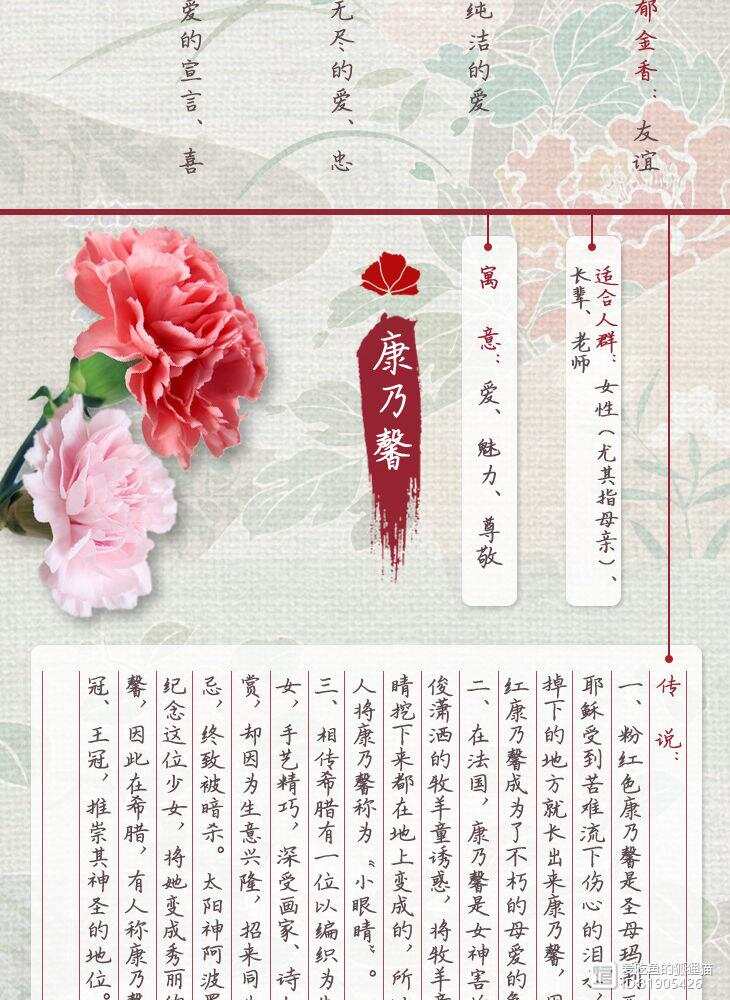 郁金香：友谊
纯洁的爱
无尽的爱、忠
爱的宣言、喜
适合人群：女性（尤其指母亲）、
长辈、老师
寓意：爱、魅力、尊敬
康乃馨
传说：
一、粉红色康乃馨是圣母玛利
耶稣受到苦难流下伤心的泪水
掉下的地方就长出来康乃馨，因
红康乃馨成为了不朽的母爱的象
二、在法国，康乃馨是女神害
俊潇洒的牧羊童诱惑，将牧羊童
睛挖下来都在地上变成的，所以
人将康乃馨称为“小眼睛”。
三、相传希腊有一位以编织为
女，手艺精巧，深受画家、诗
赏，却因为生意兴隆，招来同
忌，终致被暗杀。太阳神阿波罗
纪念这位少女，将她变成秀丽的
馨，因此在希腊，有人称康乃馨
冠、王冠，推崇其神圣的地位。
爱吃鱼的狐狸猫
ID:81905426